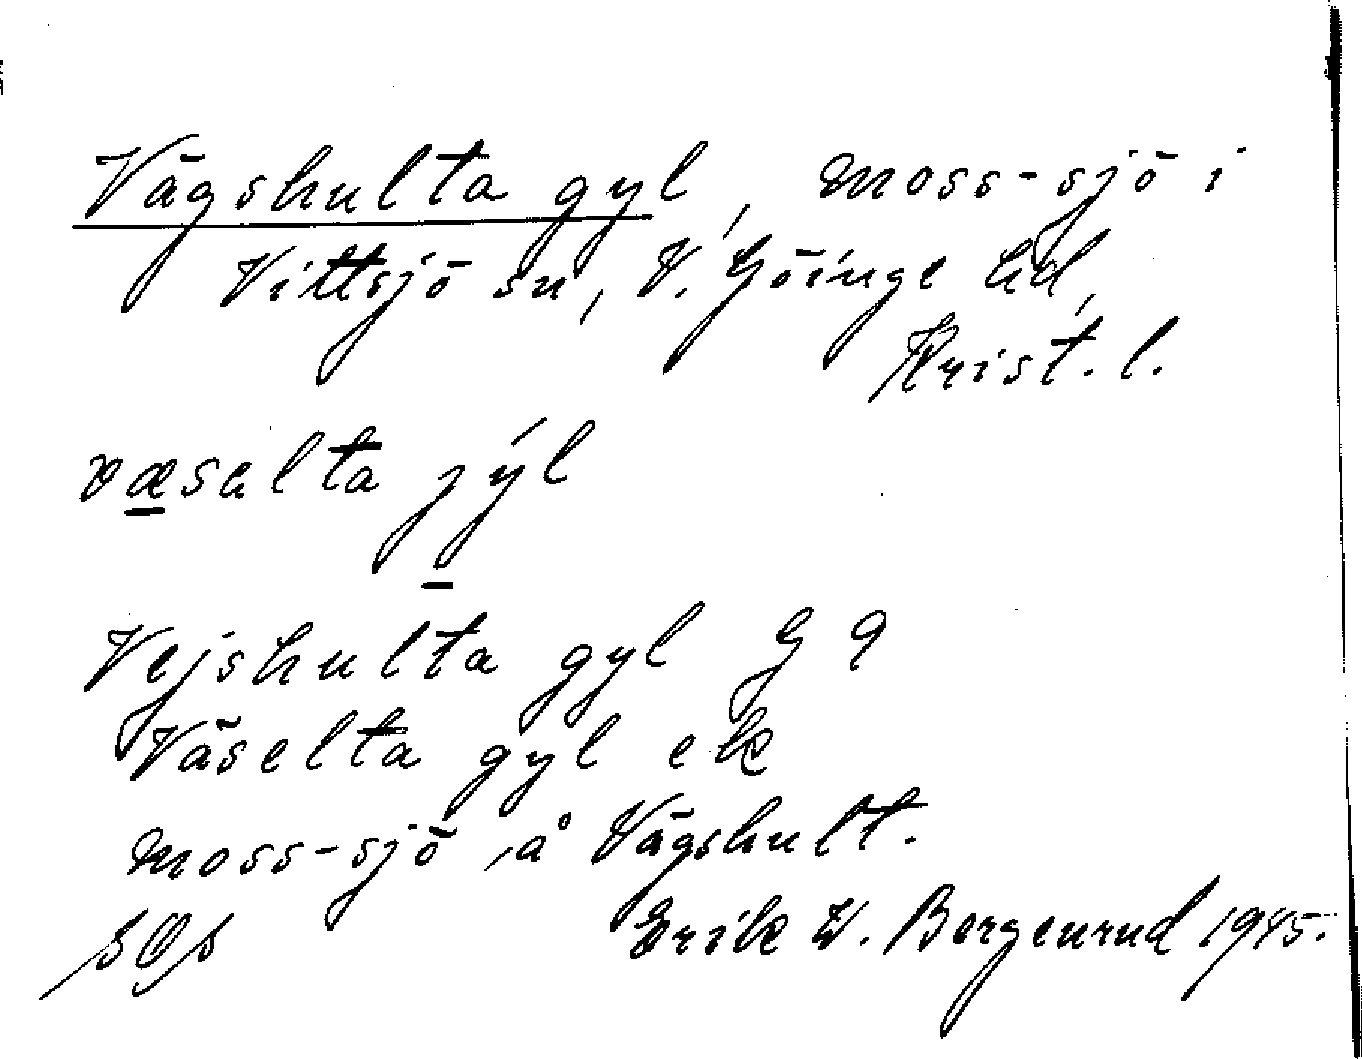 Vägshulta gyl, moss-sjö i
Vittsjö sn, V. Göinge hd,
Krist. l.
væsalta jýl
Vejshulta gyl G 9
Väselta gyl ek
moss-sjö, å Vägshult.
Erik W. Bergenrud 1945.